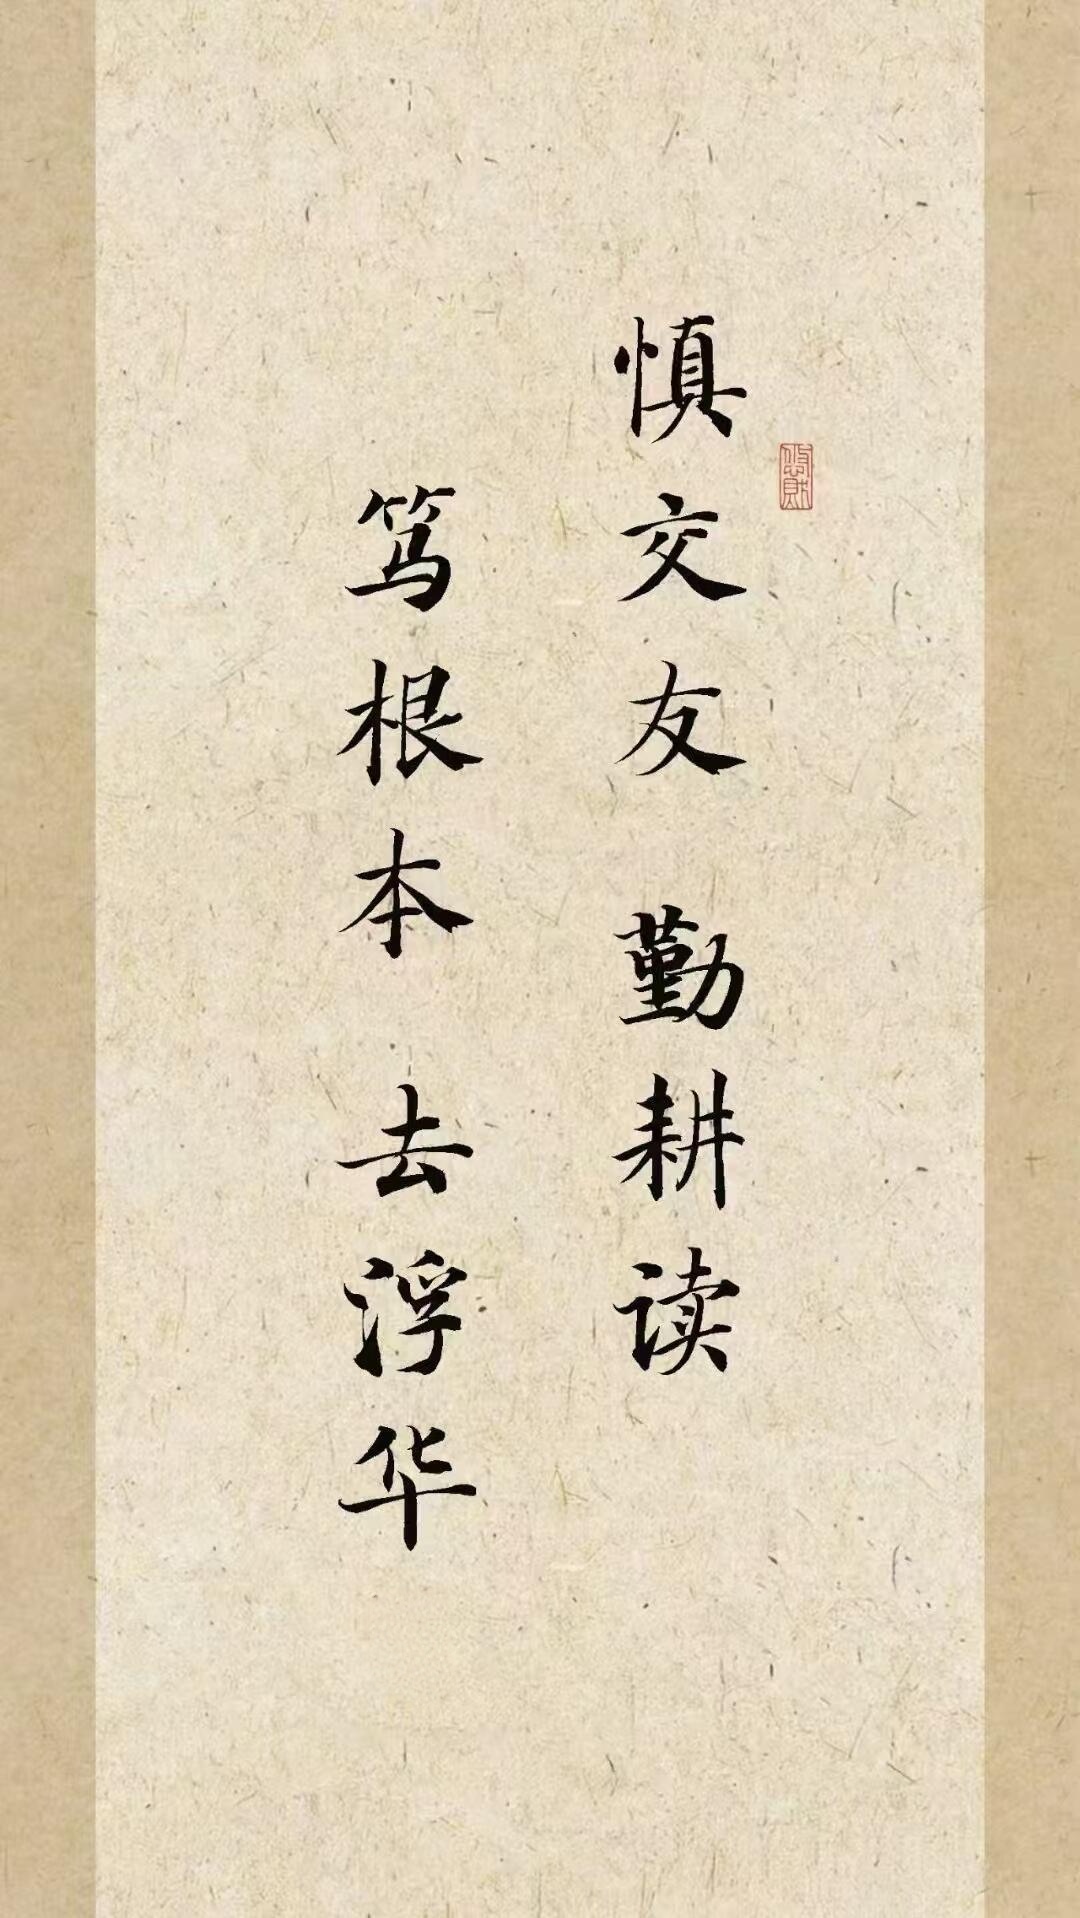 慎交友 勤耕读
笃根本 去浮华